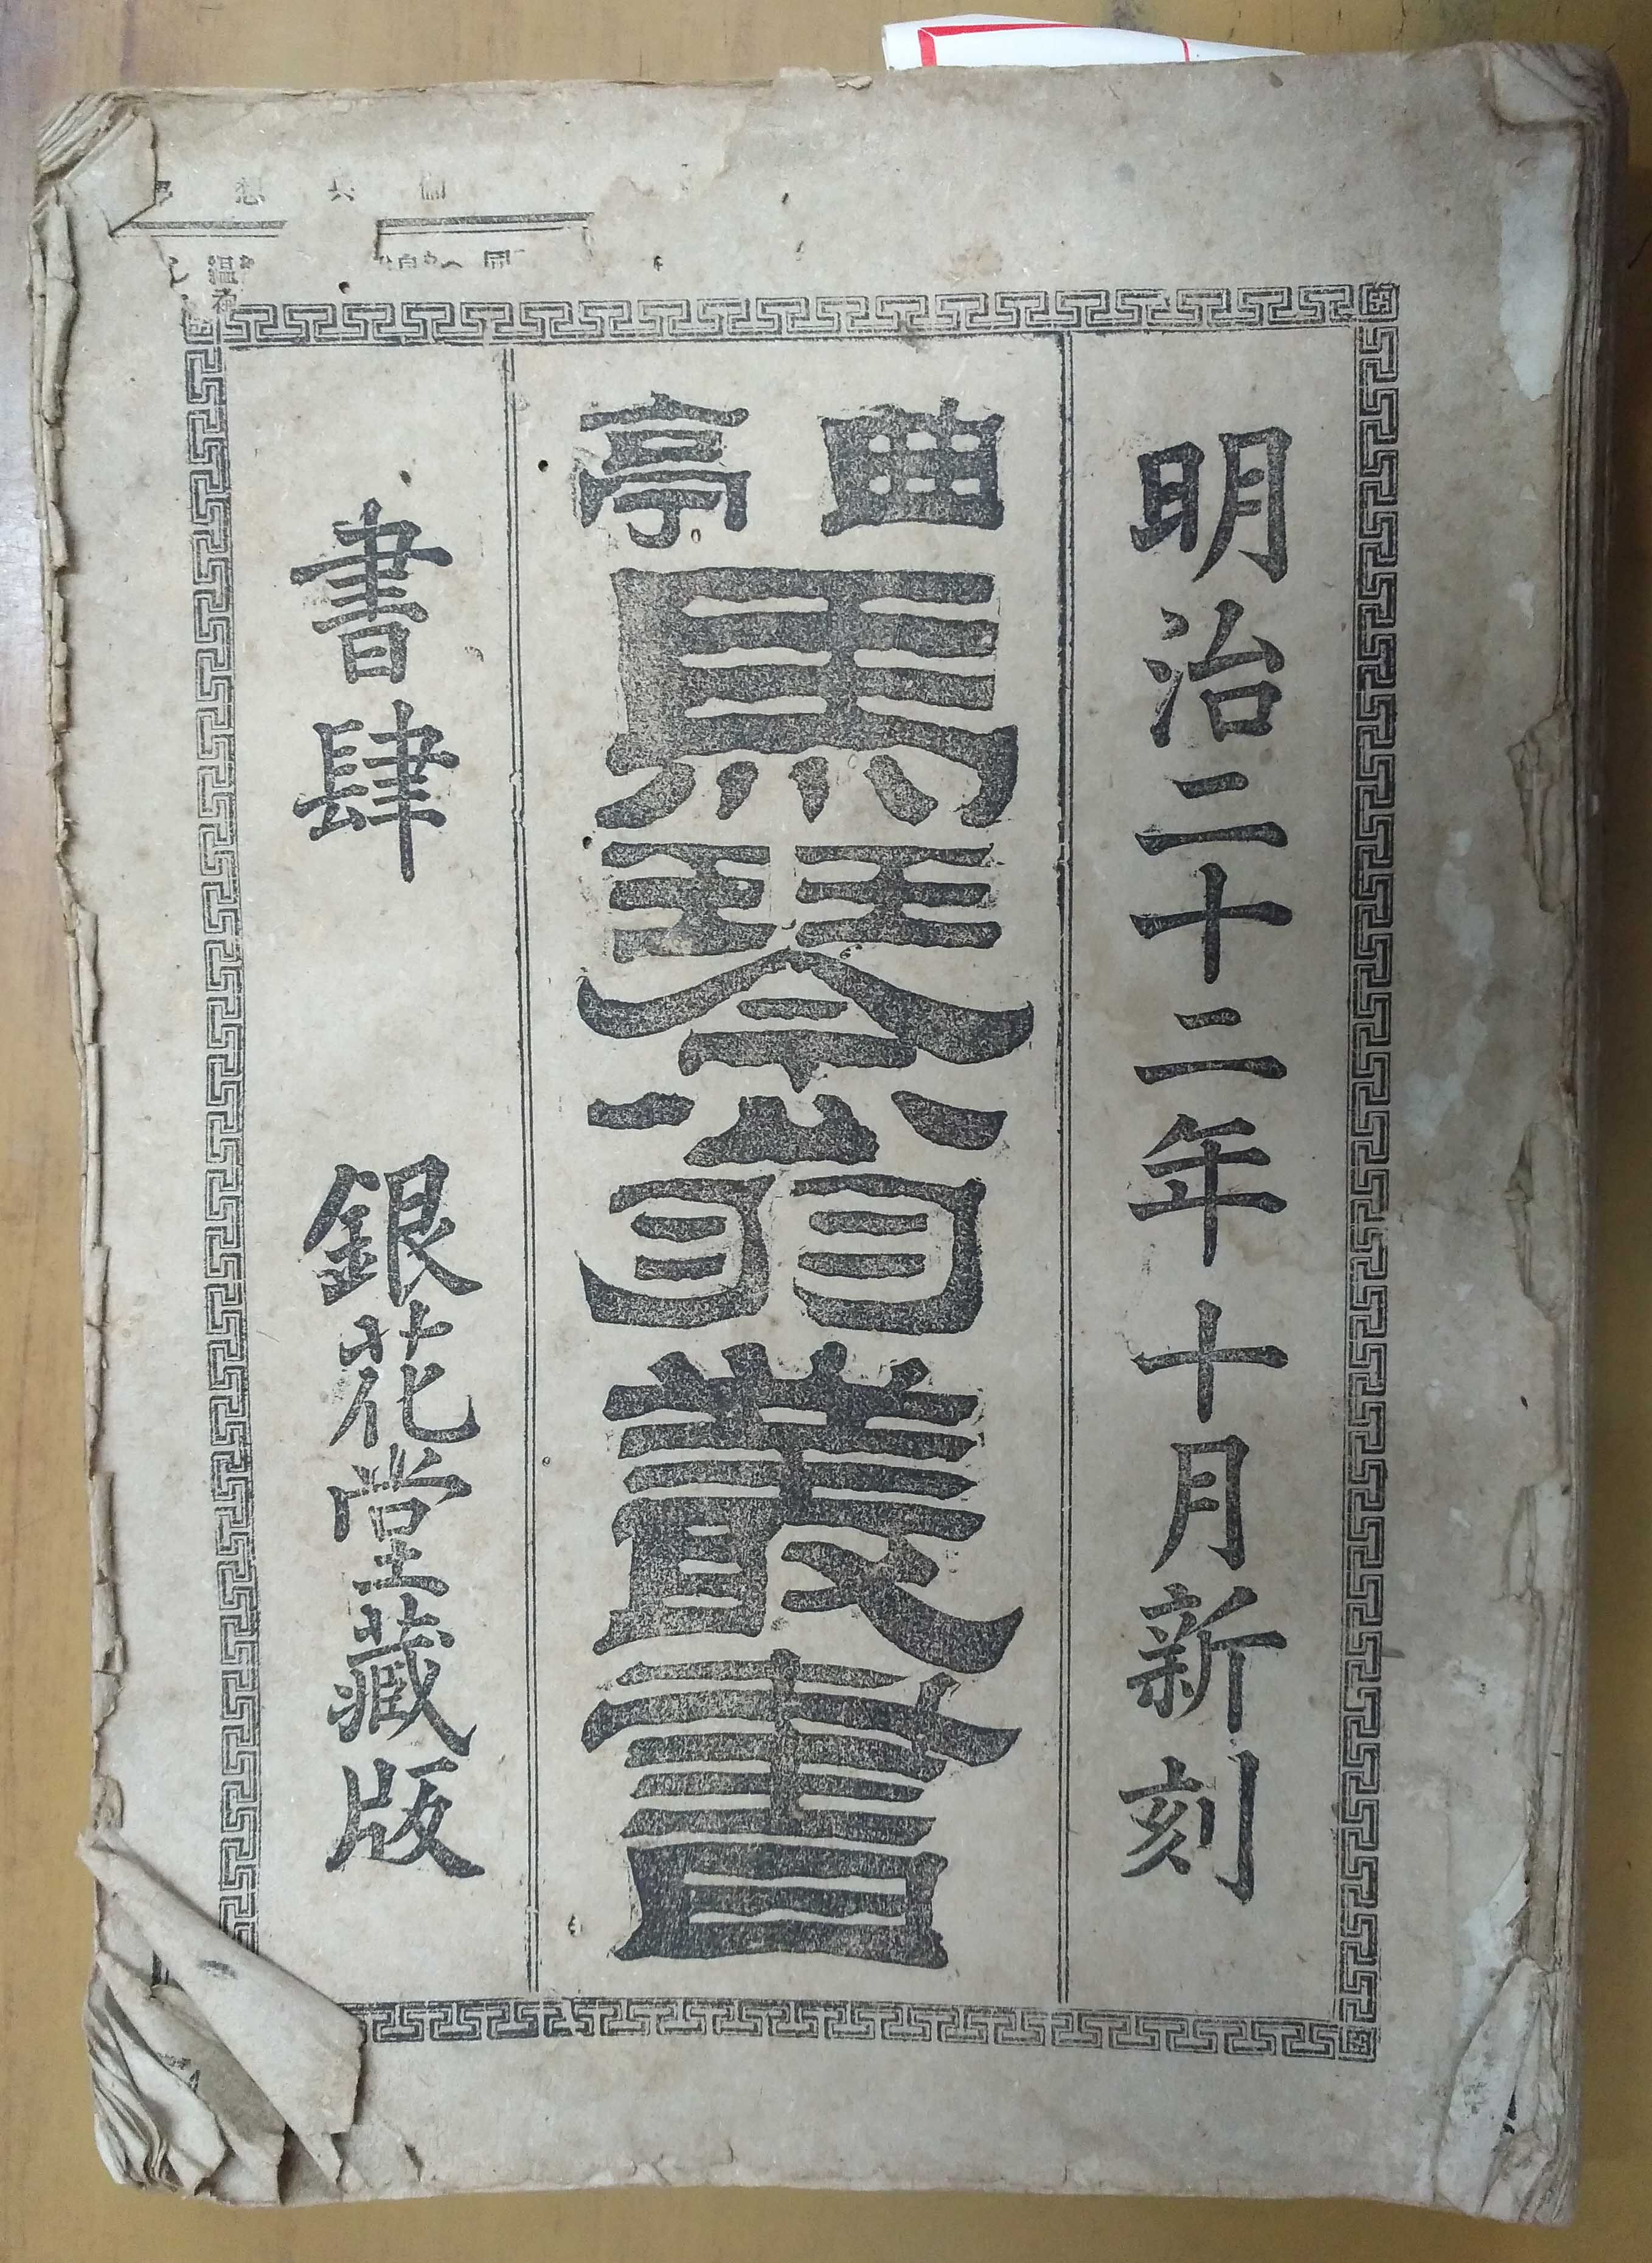 明治二十二年十月新刻
曲亭
馬琴翁叢書
書肆 銀花堂藏版